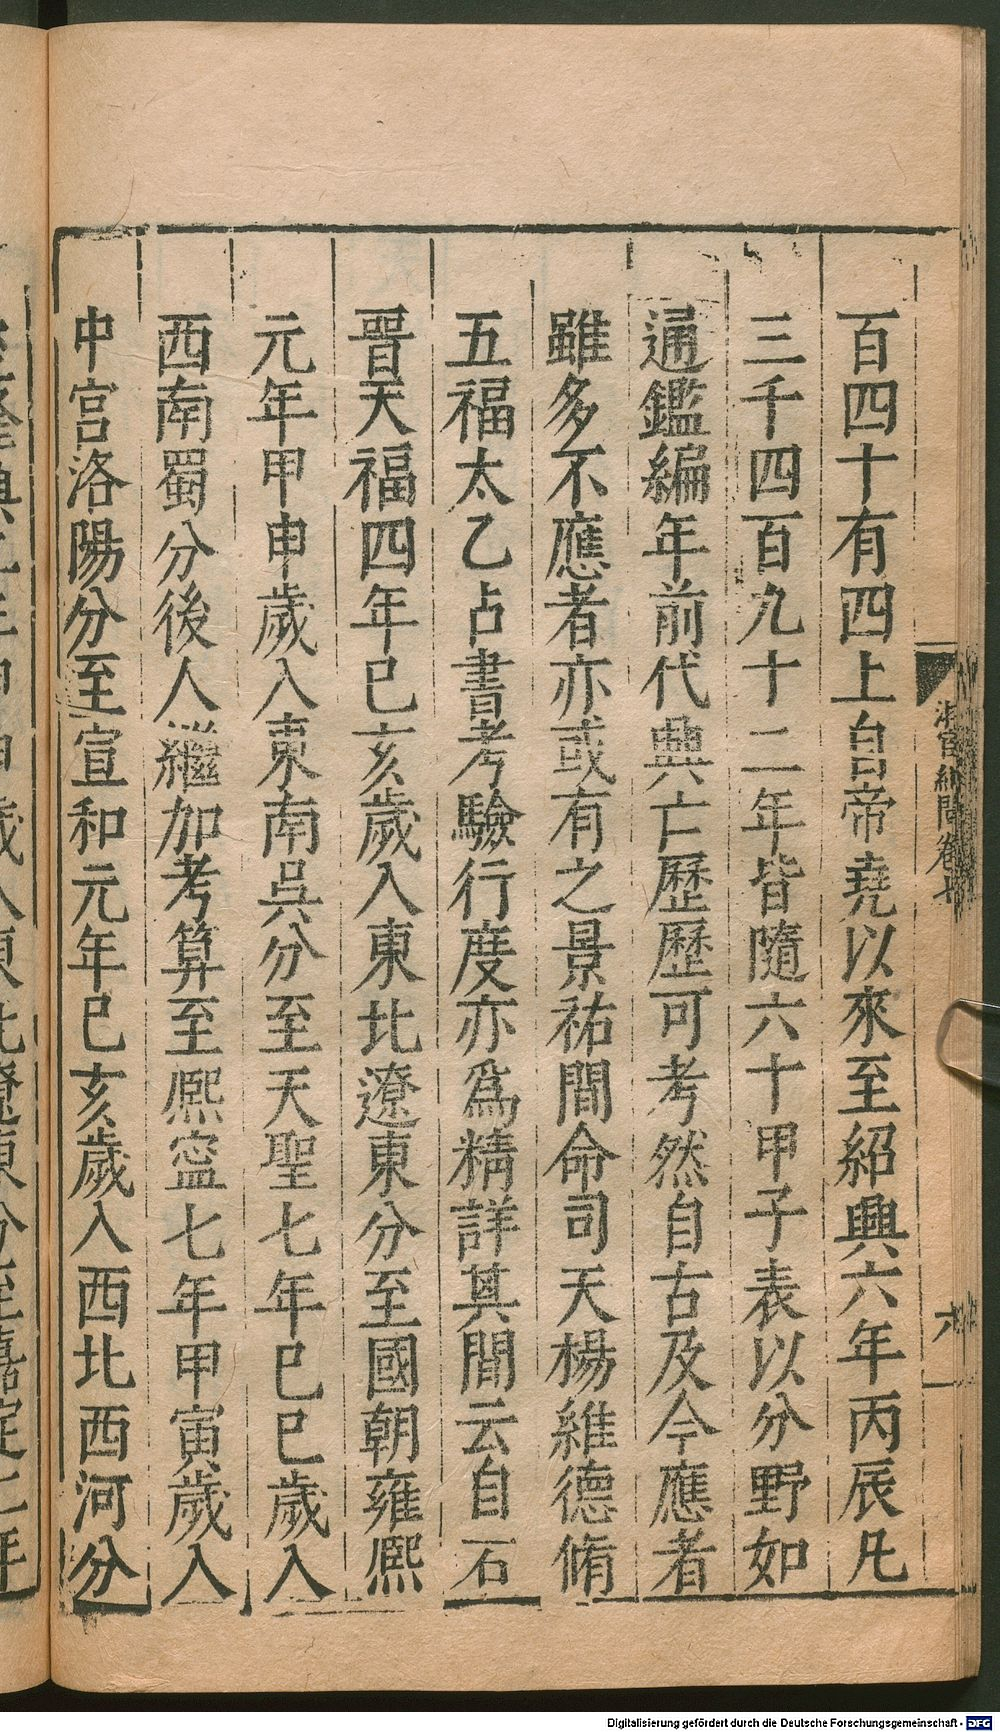 百四十有四上自帝堯以來至紹興六年丙辰凡
三千四百九十二年皆隨六十甲子表以分野如
通鑑編年前代興亡歷歷可考然自古及今應者
雖多不應者亦或有之景祐間命司天楊維德脩
五福太乙占書考驗行度亦爲精詳其間云自石
晉天福四年巳亥歲入東北遼東分至國朝雍熈
元年甲申歲入東南吳分至天聖七年巳巳歲入
西南蜀分後人繼加考算至熈寧七年甲寅歲入
中宫洛陽分至宣和元年巳亥歲入西北西河分
六
Digitalisierung gefördert durch die Deutsche Forschungsgemeinschaft - DFG